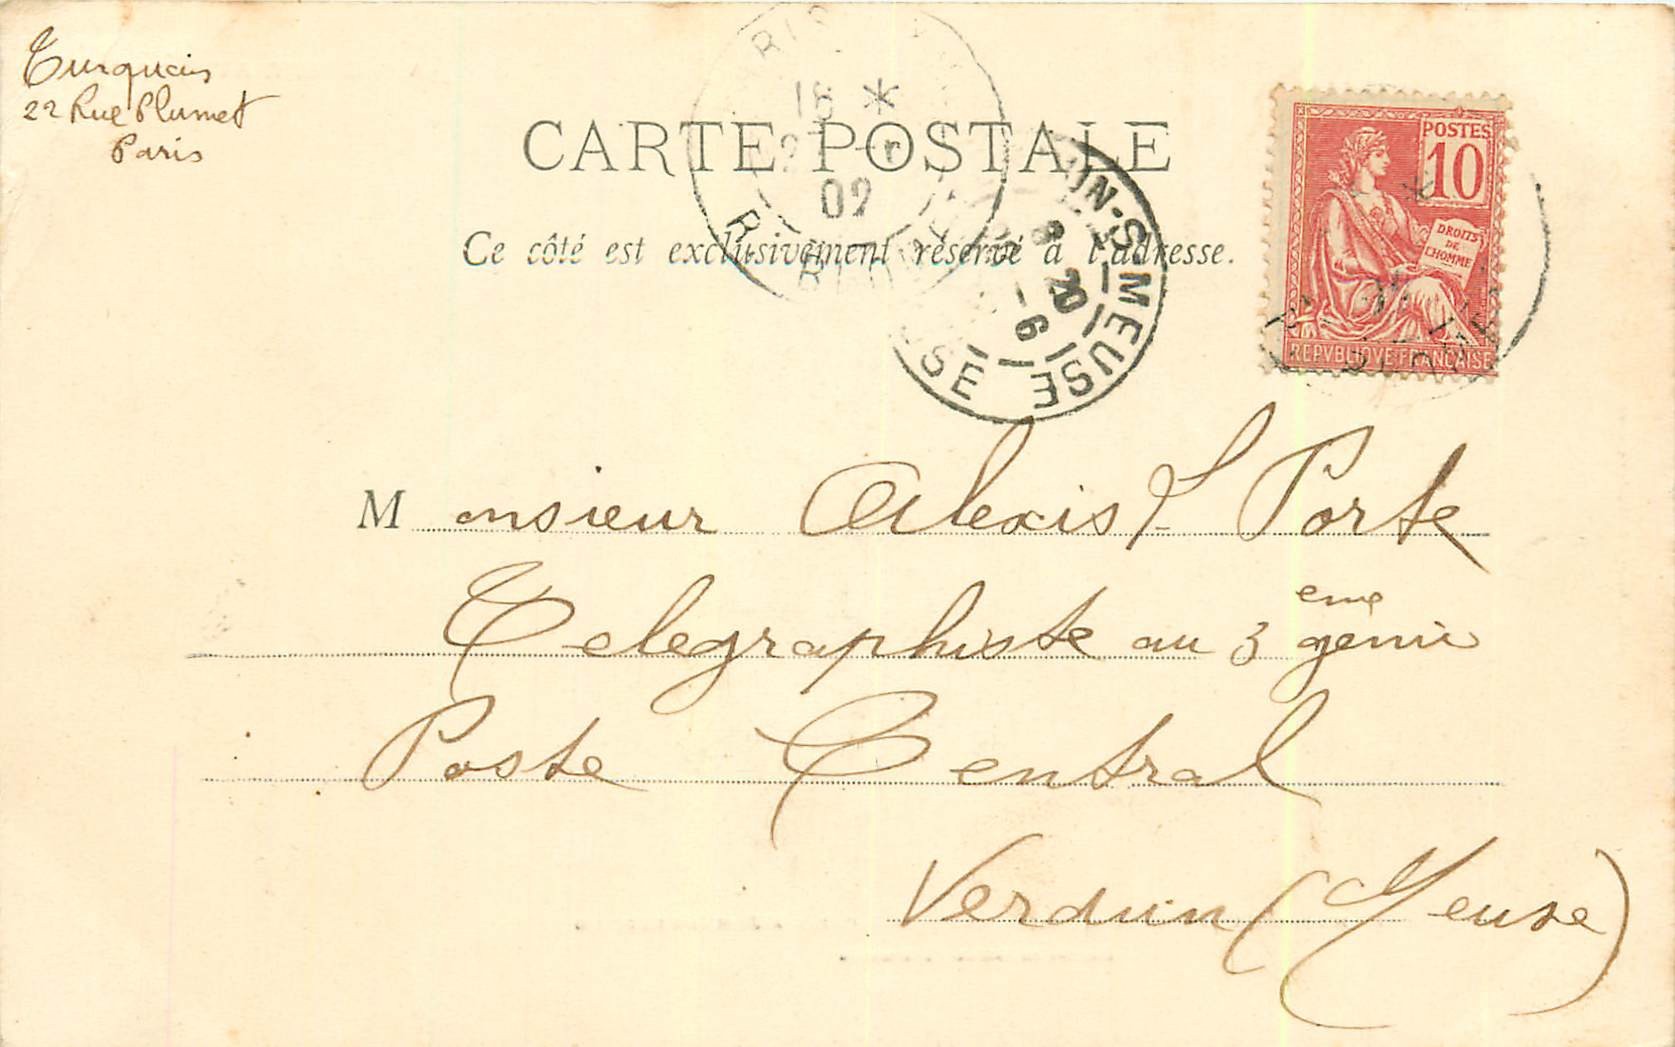 Turquais
22 Rue Plumet
Paris
CARTE POSTALE
Ce côté est exclusivement réservé à l'adresse.
18 *
02
R. BLOMET
UN-S-MEUSE
8
20 - 6
MEUSE
POSTES
10
DROITS
DE
L'HOMME
REPVBLIQVE FRANÇAISE
Monsieur Alexis Porte
Telegraphiste au 3eme génie
Poste Central
Verdun (Meuse)